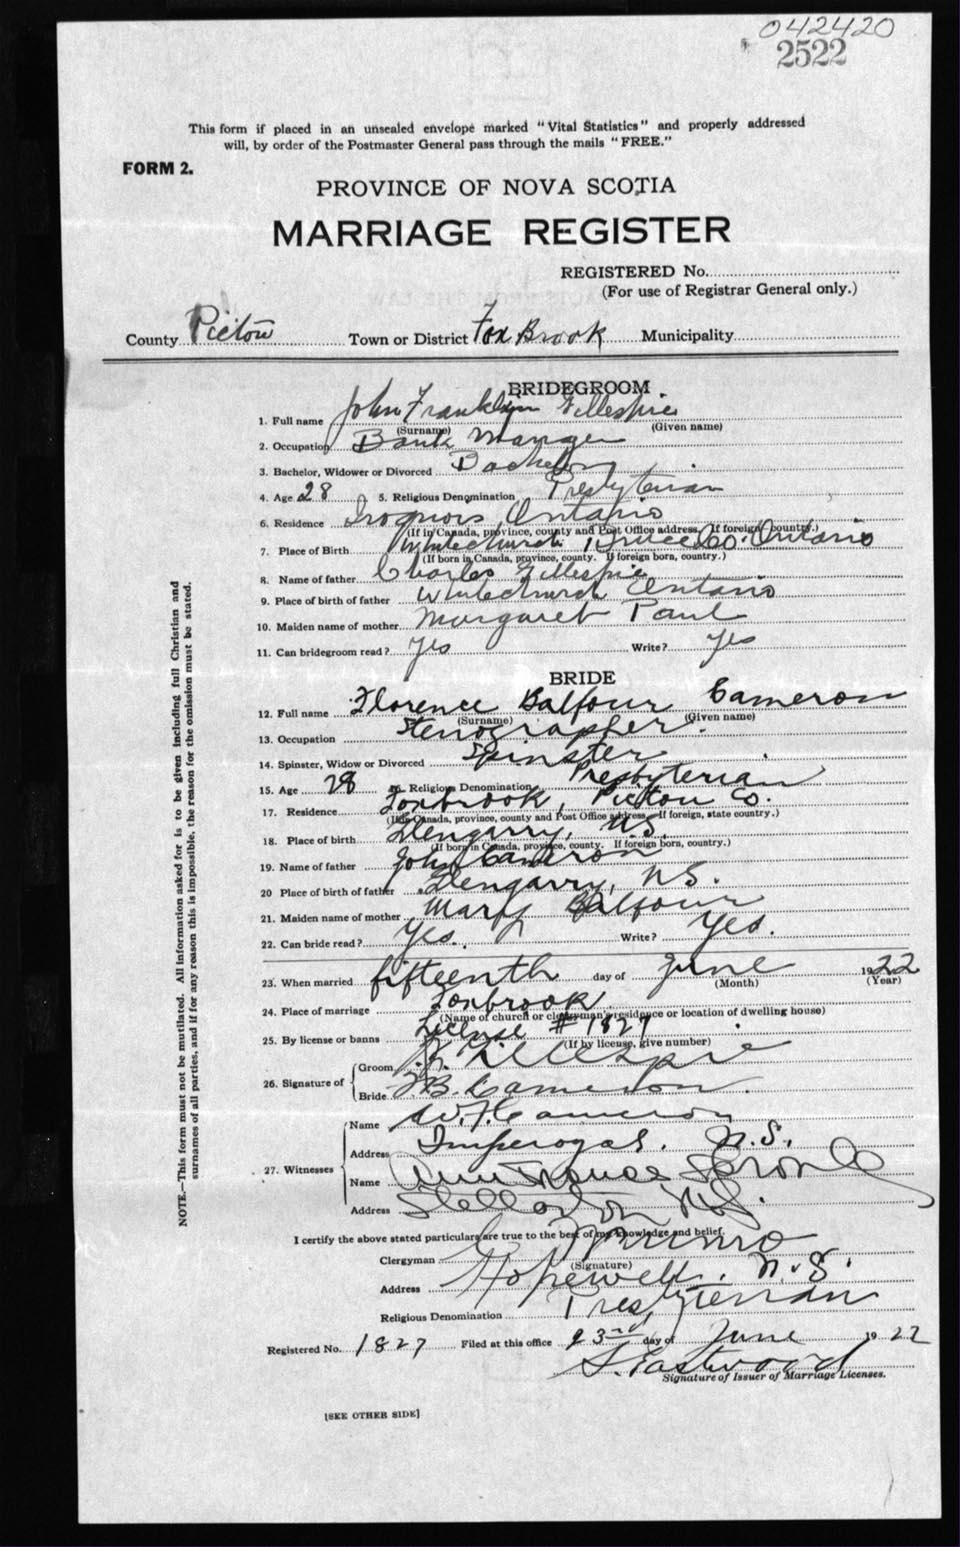 042420
2522
This form if placed in an unsealed envelope marked "Vital Statistics" and properly addressed
will, by order of the Postmaster General pass through the mails "FREE."
FORM 2.
PROVINCE OF NOVA SCOTIA
MARRIAGE REGISTER
REGISTERED No.
(For use of Registrar General only.)
County Pictou Town or District Fox Brook Municipality
BRIDEGROOM
1. Full name John Franklyn Gillespie
(Surname) (Given name)
2. Occupation Bank Manager
3. Bachelor, Widower or Divorced Bachelor
4. Age 28 5. Religious Denomination Presbyterian
6. Residence Iroquois, Ontario
(If in Canada, province, county and Post Office address. If foreign country.)
7. Place of Birth Whitechurch, Bruce Co. Ontario
(If born in Canada, province, county. If foreign born, country.)
8. Name of father Charles Gillespie
9. Place of birth of father Whitechurch Ontario
10. Maiden name of mother Margaret Paul
11. Can bridegroom read? Yes Write? Yes
BRIDE
12. Full name Florence Balfour Cameron
(Surname) (Given name)
13. Occupation Stenographer.
14. Spinster, Widow or Divorced Spinster
15. Age 28 16. Religious Denomination Presbyterian
17. Residence Foxbrook, Pictou Co.
(If in Canada, province, county and Post Office address. If foreign, state country.)
18. Place of birth Glengarry, N.S.
(If born in Canada, province, county. If foreign born, country.)
19. Name of father John Cameron
20 Place of birth of father Glengarry, N.S.
21. Maiden name of mother Mary Balfour
22. Can bride read? Yes. Write? Yes.
23. When married fifteenth day of June 1922
(Month) (Year)
24. Place of marriage Foxbrook.
(Name of church or clergyman's residence or location of dwelling house)
25. By license or banns License # 1827
(If by license, give number)
26. Signature of Groom J.F. Gillespie
Bride F.B. Cameron.
27. Witnesses Name Cameron
Address Imperoyal, N.S.
Name
Address Stellarton N.S.
I certify the above stated particulars are true to the best of my knowledge and belief.
Clergyman Munro
(Signature)
Address Hopewell, N.S.
Religious Denomination Presbyterian
Registered No. 1827 Filed at this office 23rd day of June 1922
S. Eastwood
Signature of Issuer of Marriage Licenses.
[SEE OTHER SIDE]
NOTE.—This form must not be mutilated. All information asked for is to be given including full Christian and
surnames of all parties, and if for any reason this is impossible, the reason for the omission must be stated.